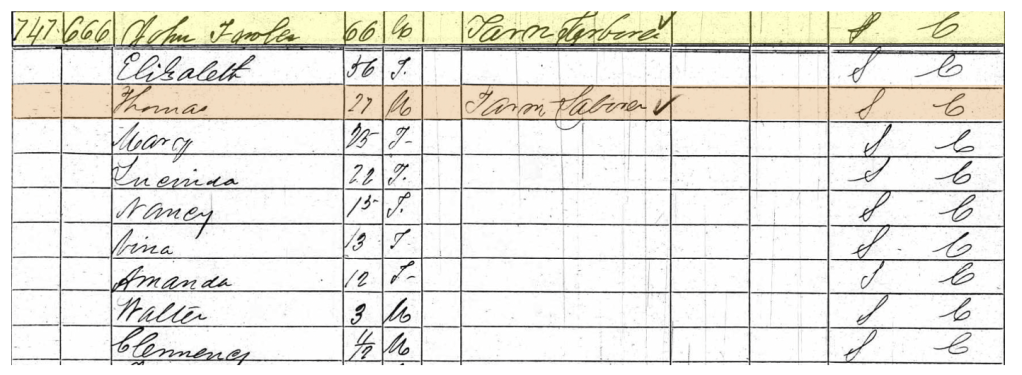 747 666 John Fowler 66 M Farm Laborer ✓ S C
Elizabeth 56 F. S C
Thomas 27 M Farm Laborer ✓ S C
Mary 25 F- S C
Lucinda 22 F. S C
Nancy 15 F. S C
Vina 13 F S C
Amanda 12 F- S C
Walter 3 M S C
Clemency 4/12 M S C